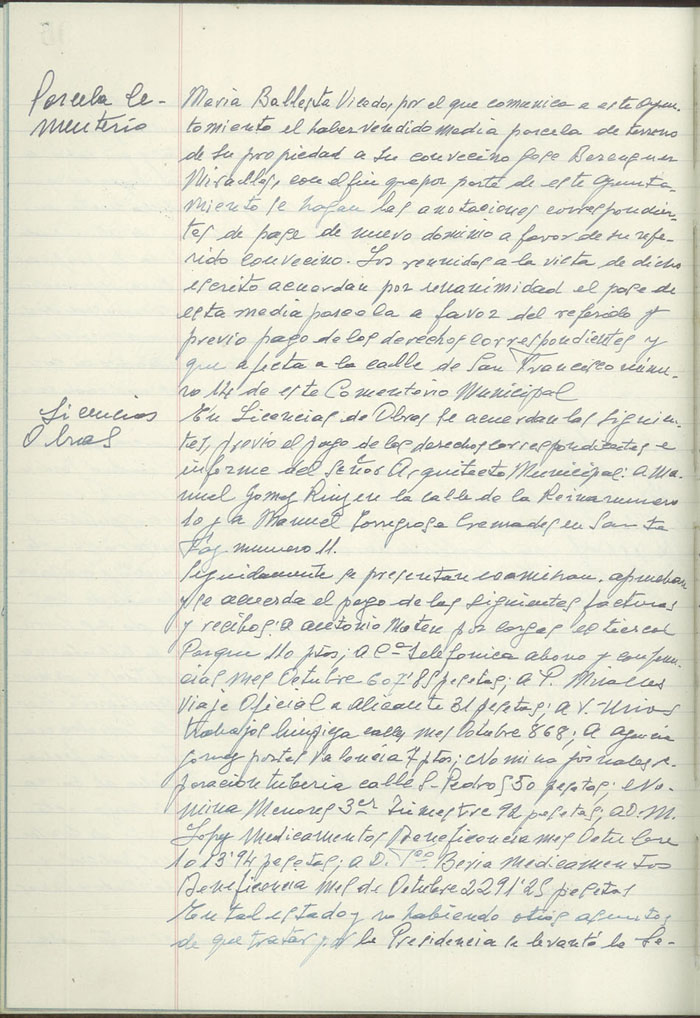 Parcela Ce-
menterio
Maria Ballesta Vicedo, por el que comunica a este Ayun-
tamiento el haber vendido media parcela de terreno
de su propiedad a su convecino Jose Berenguer
Miralles, con el fin que por parte de este Ayunta-
miento se hagan las anotaciones correspondien-
tes de pase de nuevo dominio a favor de su refe-
rido convecino. Los reunidos a la vista de dicho
escrito acuerdan por unanimidad el pase de
esta media parcela a favor del referido y
previo pago de los derechos correspondientes y
que afecta a la calle de San Francisco núme-
ro 14 de este Cementerio Municipal
Licencias
Obras
En Licencias de Obras se acuerdan las siguien-
tes, previo el pago de los derechos correspondientes e
informe del Señor Arquitecto Municipal: a Ma-
nuel Gomez Ruiz en la calle de la Reina numero
10 y a Manuel Torregrosa Cremades en Santa
Faz numero 11.
Seguidamente se presentan examinan, aprueban
y se acuerda el pago de las siguientes facturas
y recibos: a Antonio Maten por cargas estiercol
Parque 110 ptas; a Cª Telefonica abono y conferen-
cias mes Octubre 607'85 pesetas; a P. Miralles
Viaje Oficial a Alicante 31 pesetas; a V. Urios
trabajos limpieza calles mes Octubre 868; a Agencia
Gomez portes Valencia 7 ptas; Nomina jornales re-
paracion tuberia calle S. Pedro 550 pesetas; No-
mina Menores 3er Trimestre 92 pesetas; a D. M.
Lopez Medicamentos Beneficencia mes Octubre
1013'94 pesetas; a D. Fco Beria medicamentos
Beneficencia mes de Octubre 2291'25 pesetas
En tal estado y no habiendo otros asuntos
de que tratar por la Presidencia se levantó la Se-